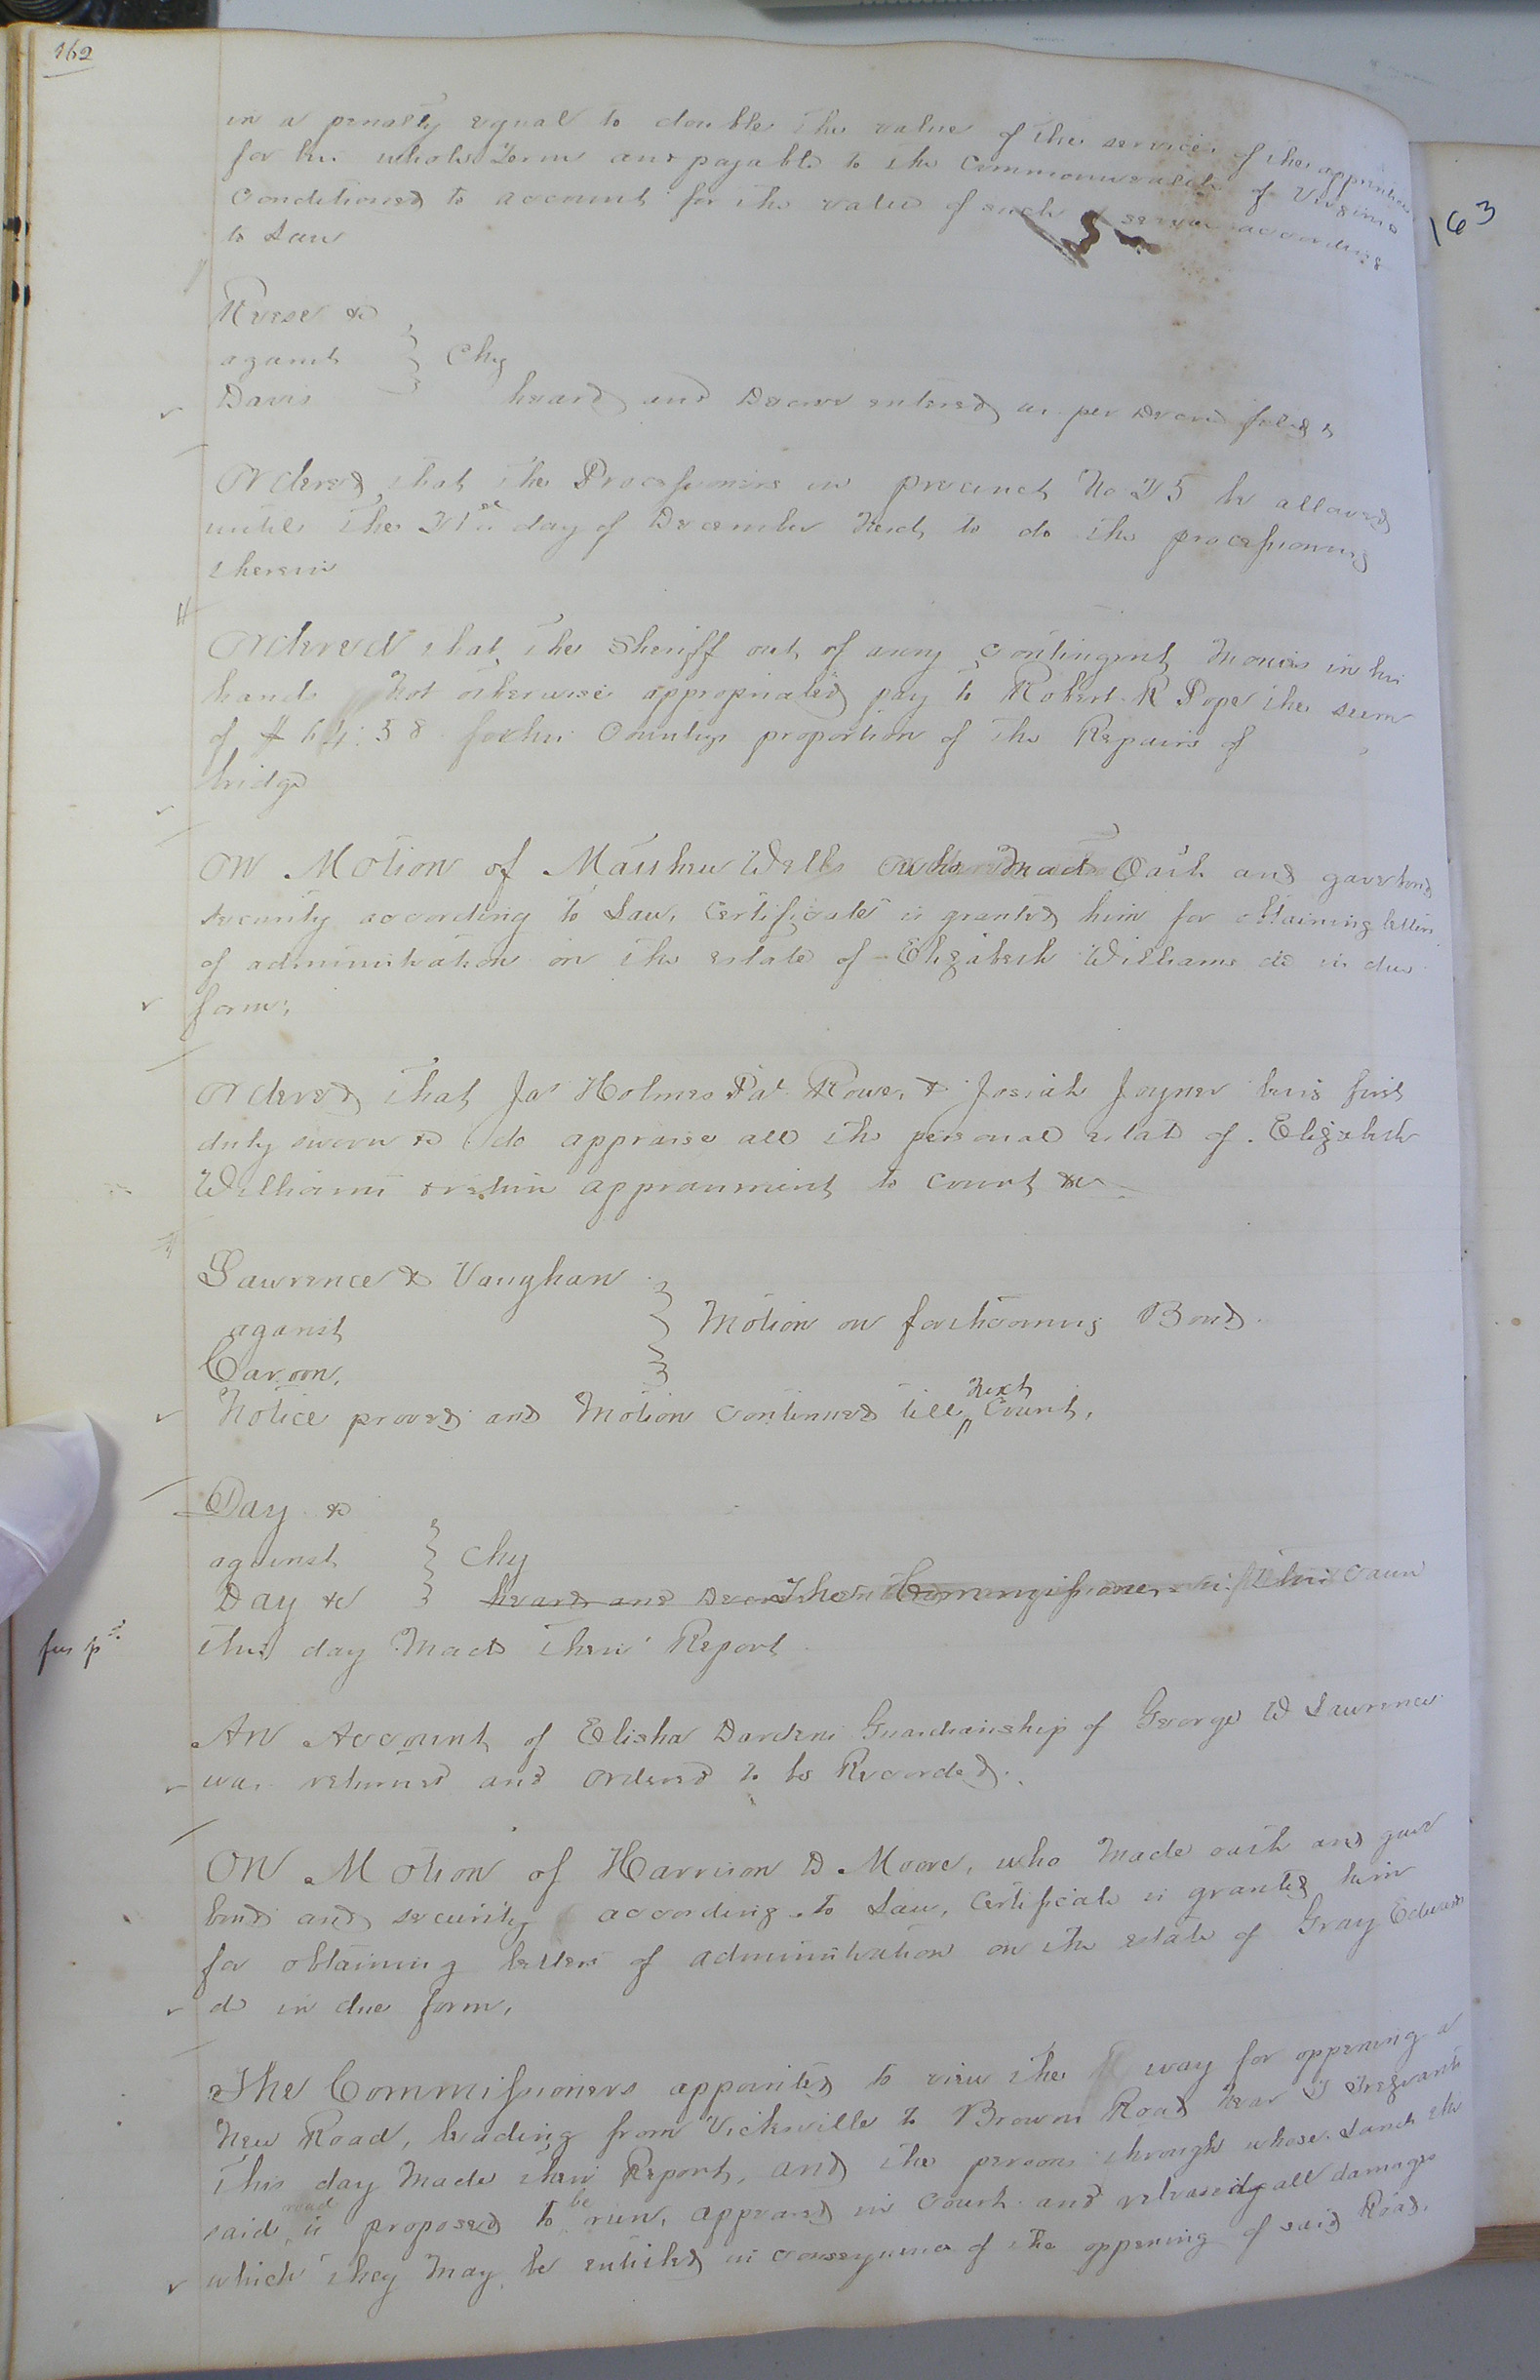 162
in a penalty equal to double the value of the services of the apprentice
for his whole Term and payable to the Commonwealth of Virginia
Conditioned to account for the value of such service according
to Law
163
Reese &c
against } Chy
Davis
heard and Decree entered as per Decree filed
Ordered that the Processioners in precinct No 25 be allowed
until the 31st day of December Next to do the processioning
therein
Ordered that the Sheriff out of any Contingent Monies in his
hands Not otherwise appropriated pay to Robert R Pope the sum
of $ 64:38 for this Countys proportion of the Repairs of
bridge
On Motion of Matthew Wells who Made Oath and gave bond
security according to Law, Certificate is granted him for obtaining letters
of administration on the estate of Elizabeth Williams dc in due
form,
Ordered that Jas Holmes Pat. Rowe, & Josiah Joyner being first
duly sworn &c do appraise all the personal estate of Elizabeth
Williams & return appraisement to Court &c
Lawrence & Vaughan
against } Motion on forthcoming Bond
Notice proved and Motion Continued till Next Court,
Day &c
against } Chy
Day &c heard and Decree The Commissioners in this Caus
this day Made their Report
An Account of Elisha Dardens Guardianship of George W Lawrence
was returned and Ordered to be Recorded.
On Motion of Harrison D. Moore, who Made oath and gave
bond and security according to Law, Certificate is granted him
for obtaining letters of administration on the estate of Gray Edwards
dc in due form,
The Commissioners appointed to view the way for oppening a
New Road, leading from Vicksville to Browns Road Near
This day Made their Report, and the persons through whose Lands the
said road is proposed to be run, appeared in Court and released all damages
which they May be entitled in consequence of the oppening of said Road.